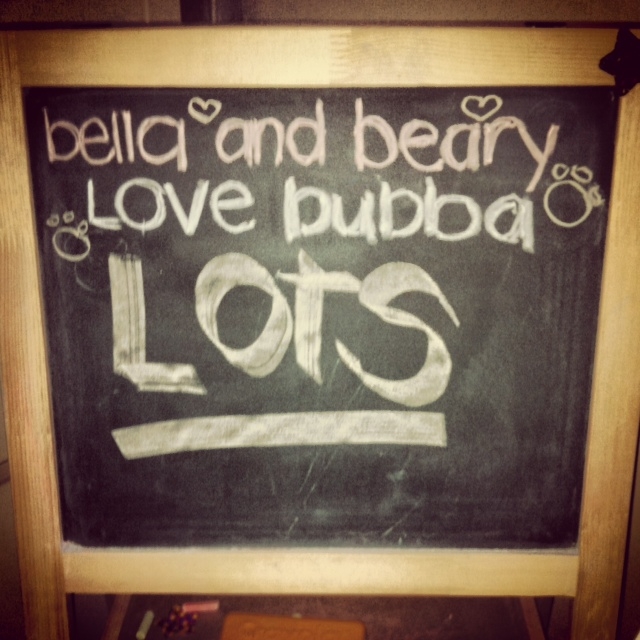 bella and beary
Love bubba
LOTS